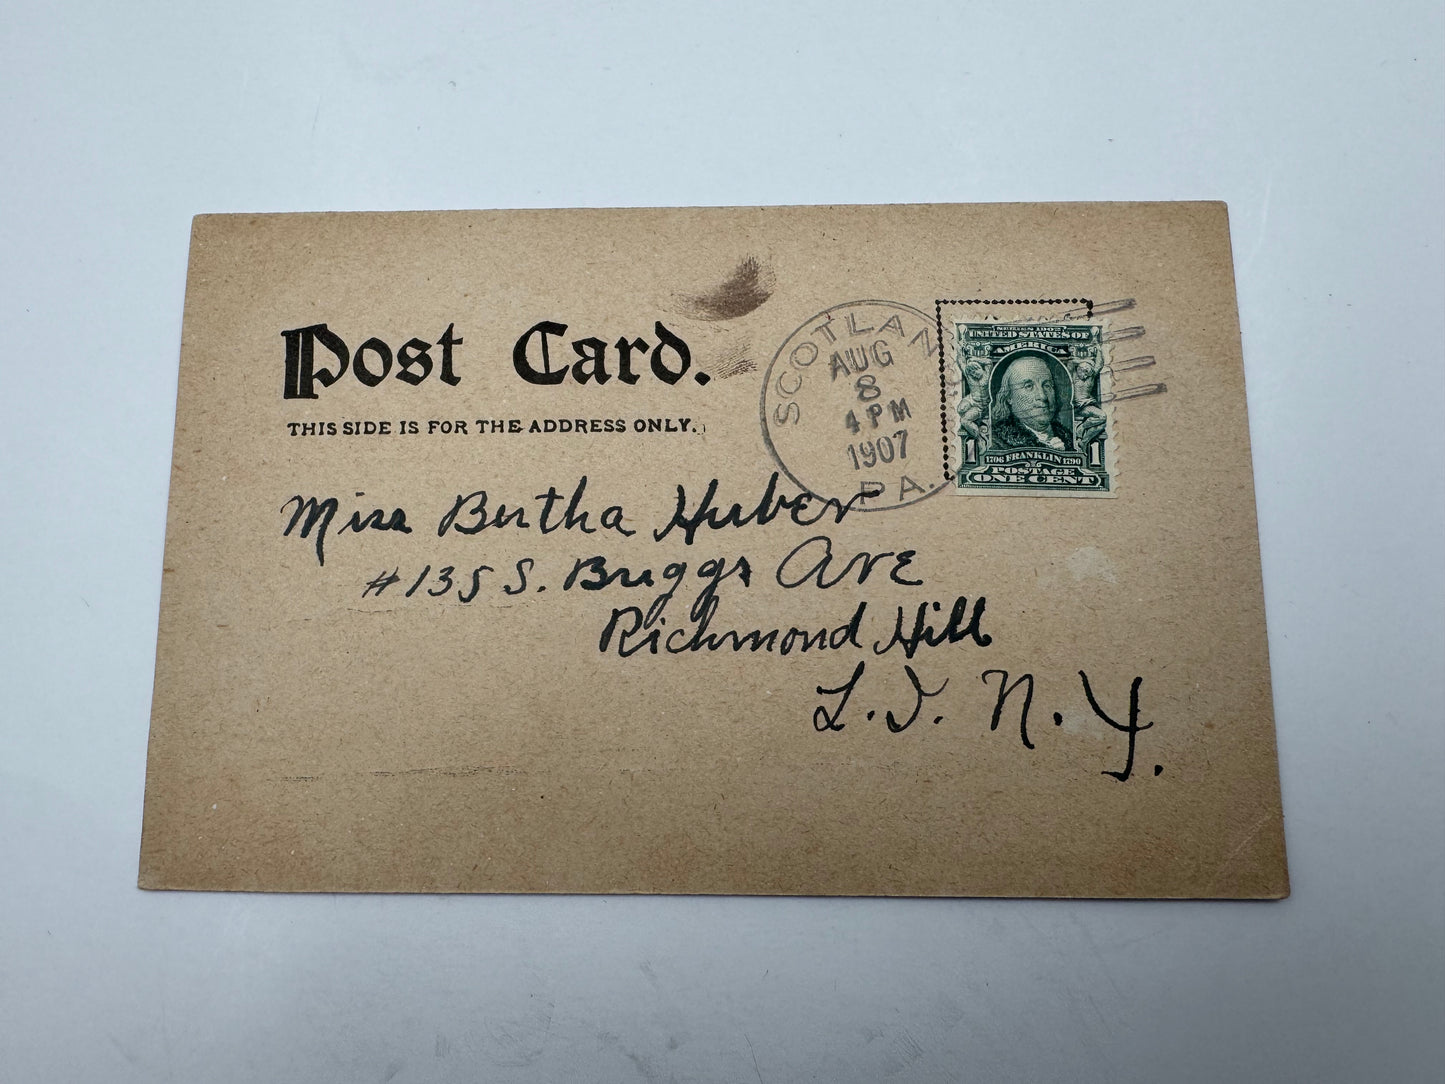 Post Card.
THIS SIDE IS FOR THE ADDRESS ONLY.
SCOTLAND
AUG
8
4 PM
1907
PA.
SERIES 1902
UNITED STATES OF
AMERICA
1706 FRANKLIN 1790
1 POSTAGE 1
ONE CENT
Miss Bertha Huber
#135 S. Briggs Ave
Richmond Hill
L.I. N.Y.